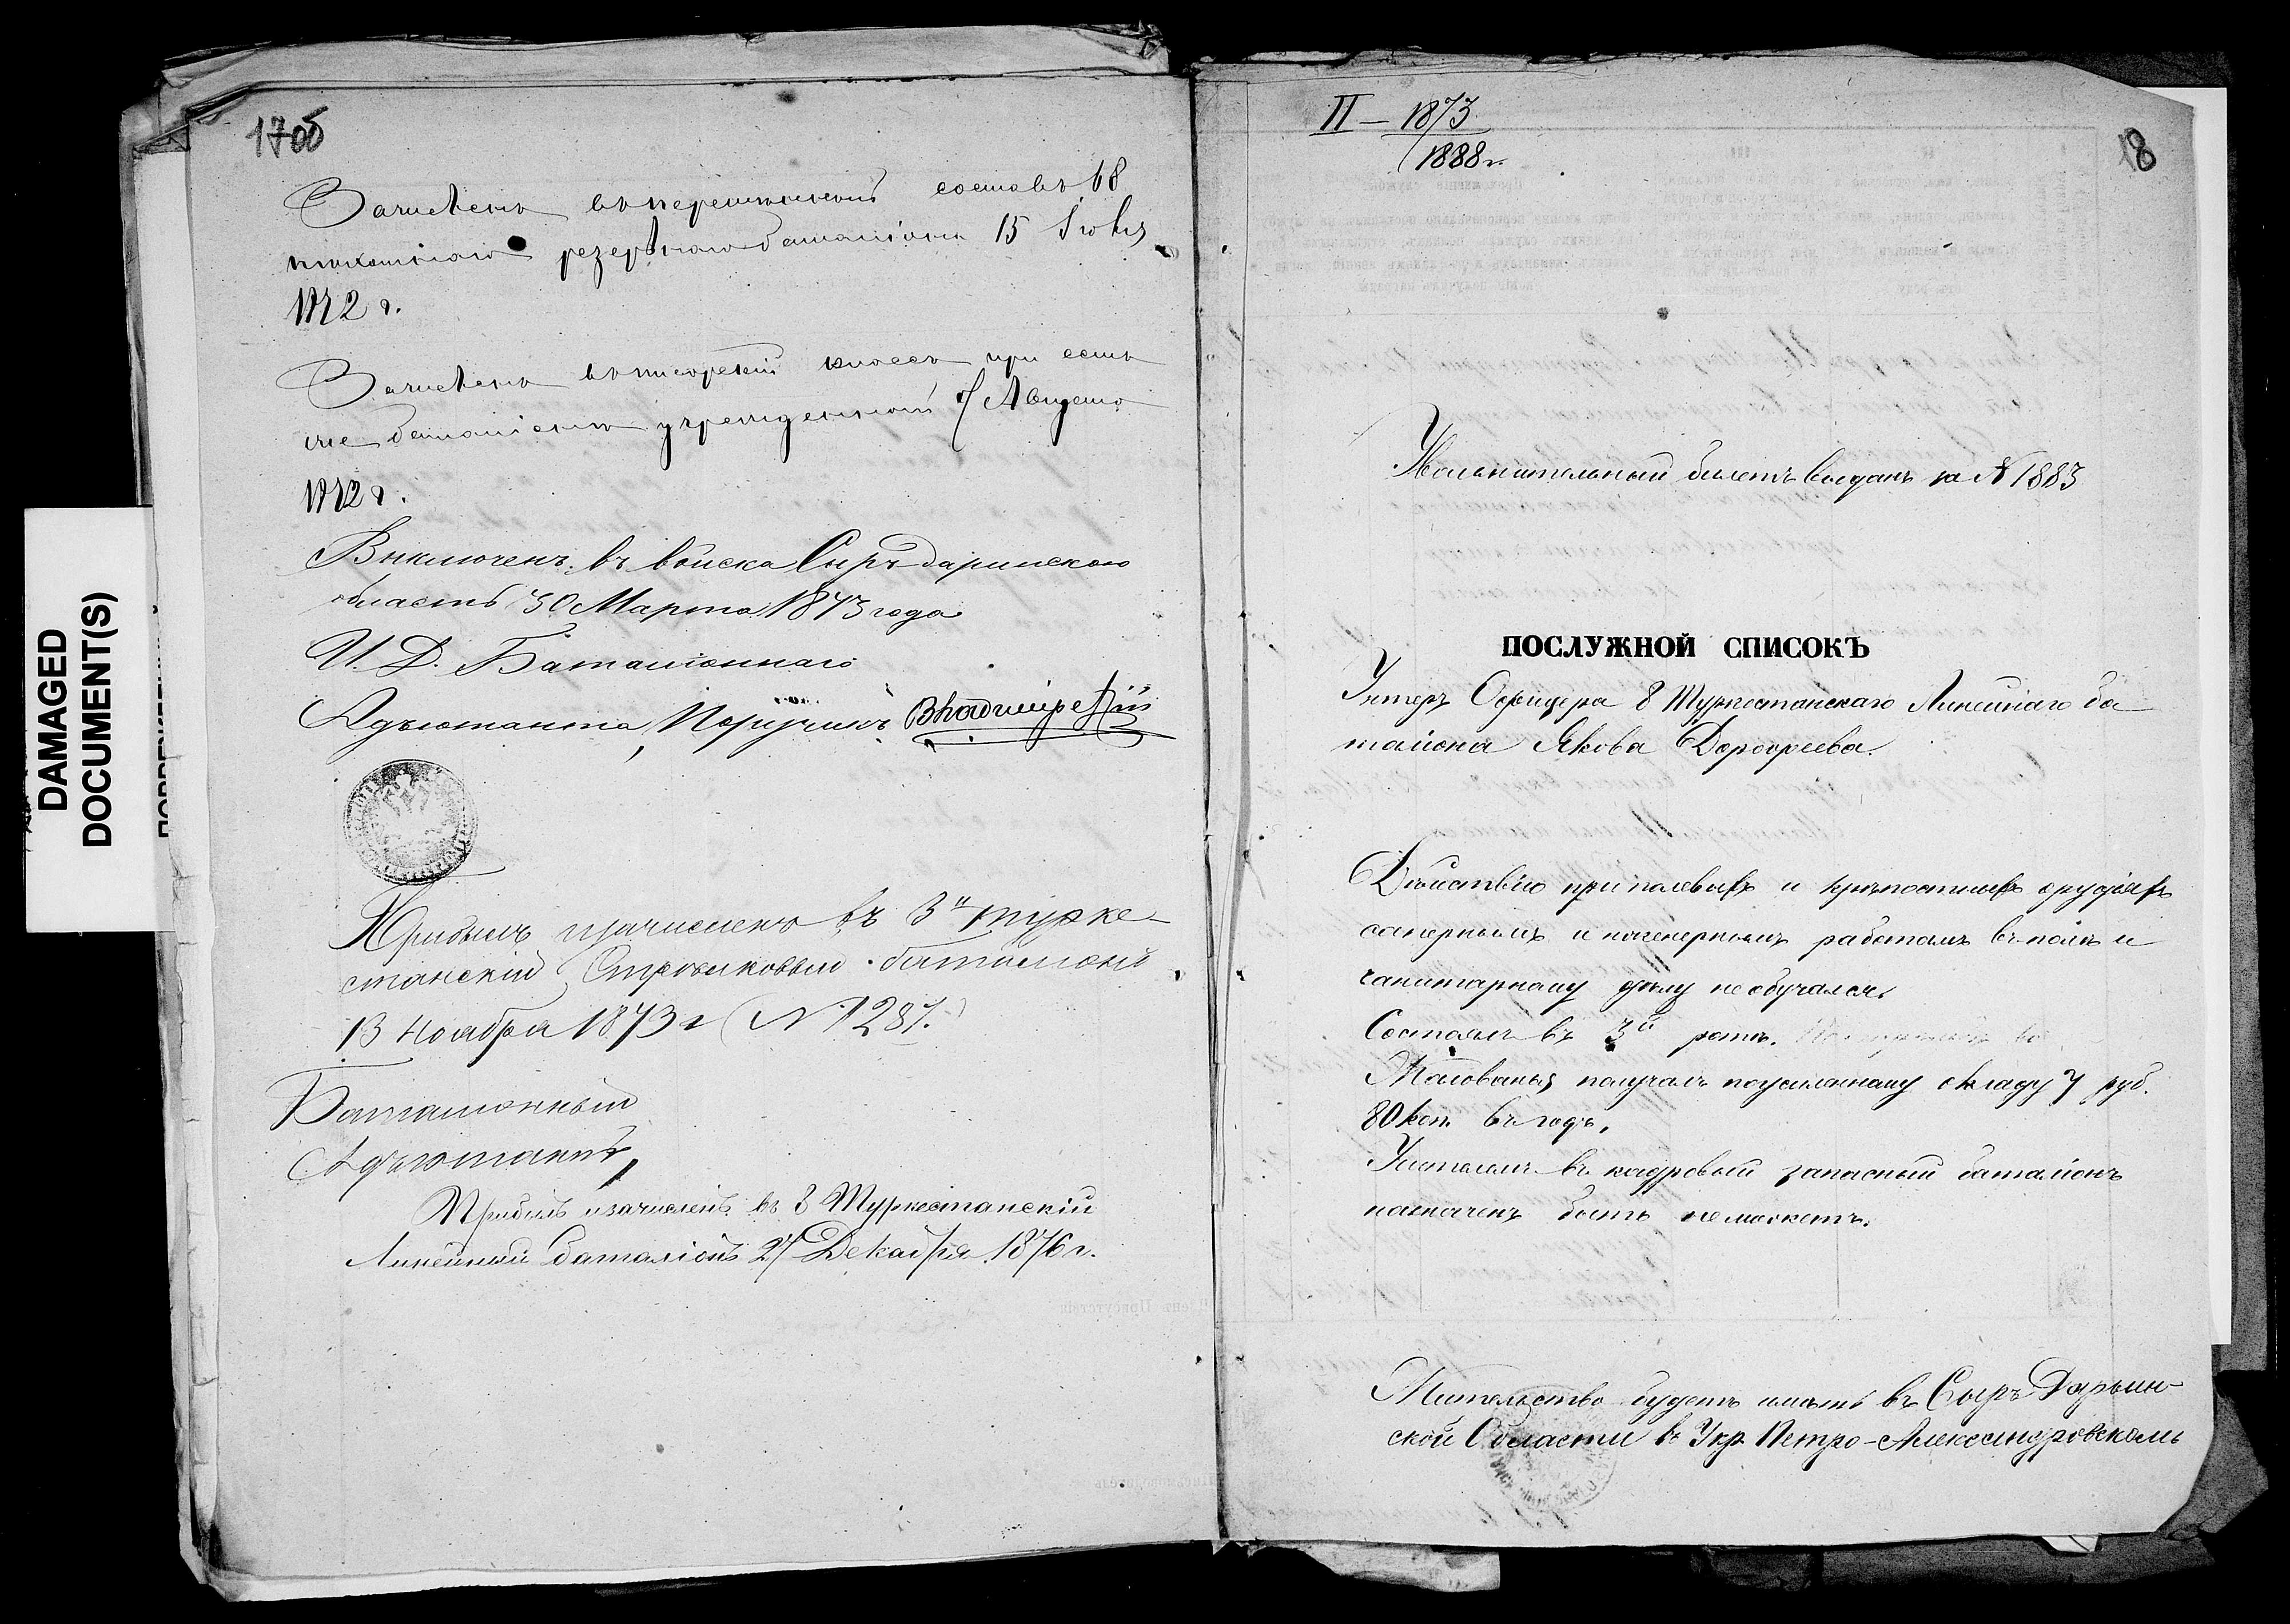 17об
Зачисленъ въ переменный составъ 68
пехотного резервного баталіона 15 Іюля
1872 г.
Зачисленъ въ писарскій классъ при семъ
же баталіонѣ учрежденный 7 Августа
1872 г.
Включенъ въ войска Сыръ-даринскою
область 30 Марта 1873 года
И. Д. Баталіоннаго
Адъютанта, Поручикъ
Прибылъ и зачисленъ въ 3й турке-
станскій Стрѣлковый баталіонъ
13 Ноября 1873 г (№ 1287.)
Баталіонный
Адъютантъ,
Прибылъ и зачисленъ въ 8 Туркестанскій
Линейный баталіонъ 27 Декабря 1876 г.
II — 1873
1888 г.
18
Увольнительный билетъ выданъ за № 1883
ПОСЛУЖНОЙ СПИСОКЪ
Унтеръ Офицера 8 Туркестанскаго Линейнаго ба-
таліона Якова Дорофеева.
Дѣйствію при полевыхъ и крѣпостныхъ орудіяхъ
сапернымъ и инженернымъ работамъ въ полѣ и
санитарному дѣлу не обучался.
Состоялъ въ 3й ротѣ.
Жалованья получалъ по усиленному окладу 7 руб.
80 коп. въ годъ.
въ кадровый запасный баталіонъ
назначенъ быть не можетъ.
Жительство будетъ имѣть въ Сыръ Дарьин-
ской Области въ Укр. Петро-Александровскомъ
DAMAGED
DOCUMENT(S)